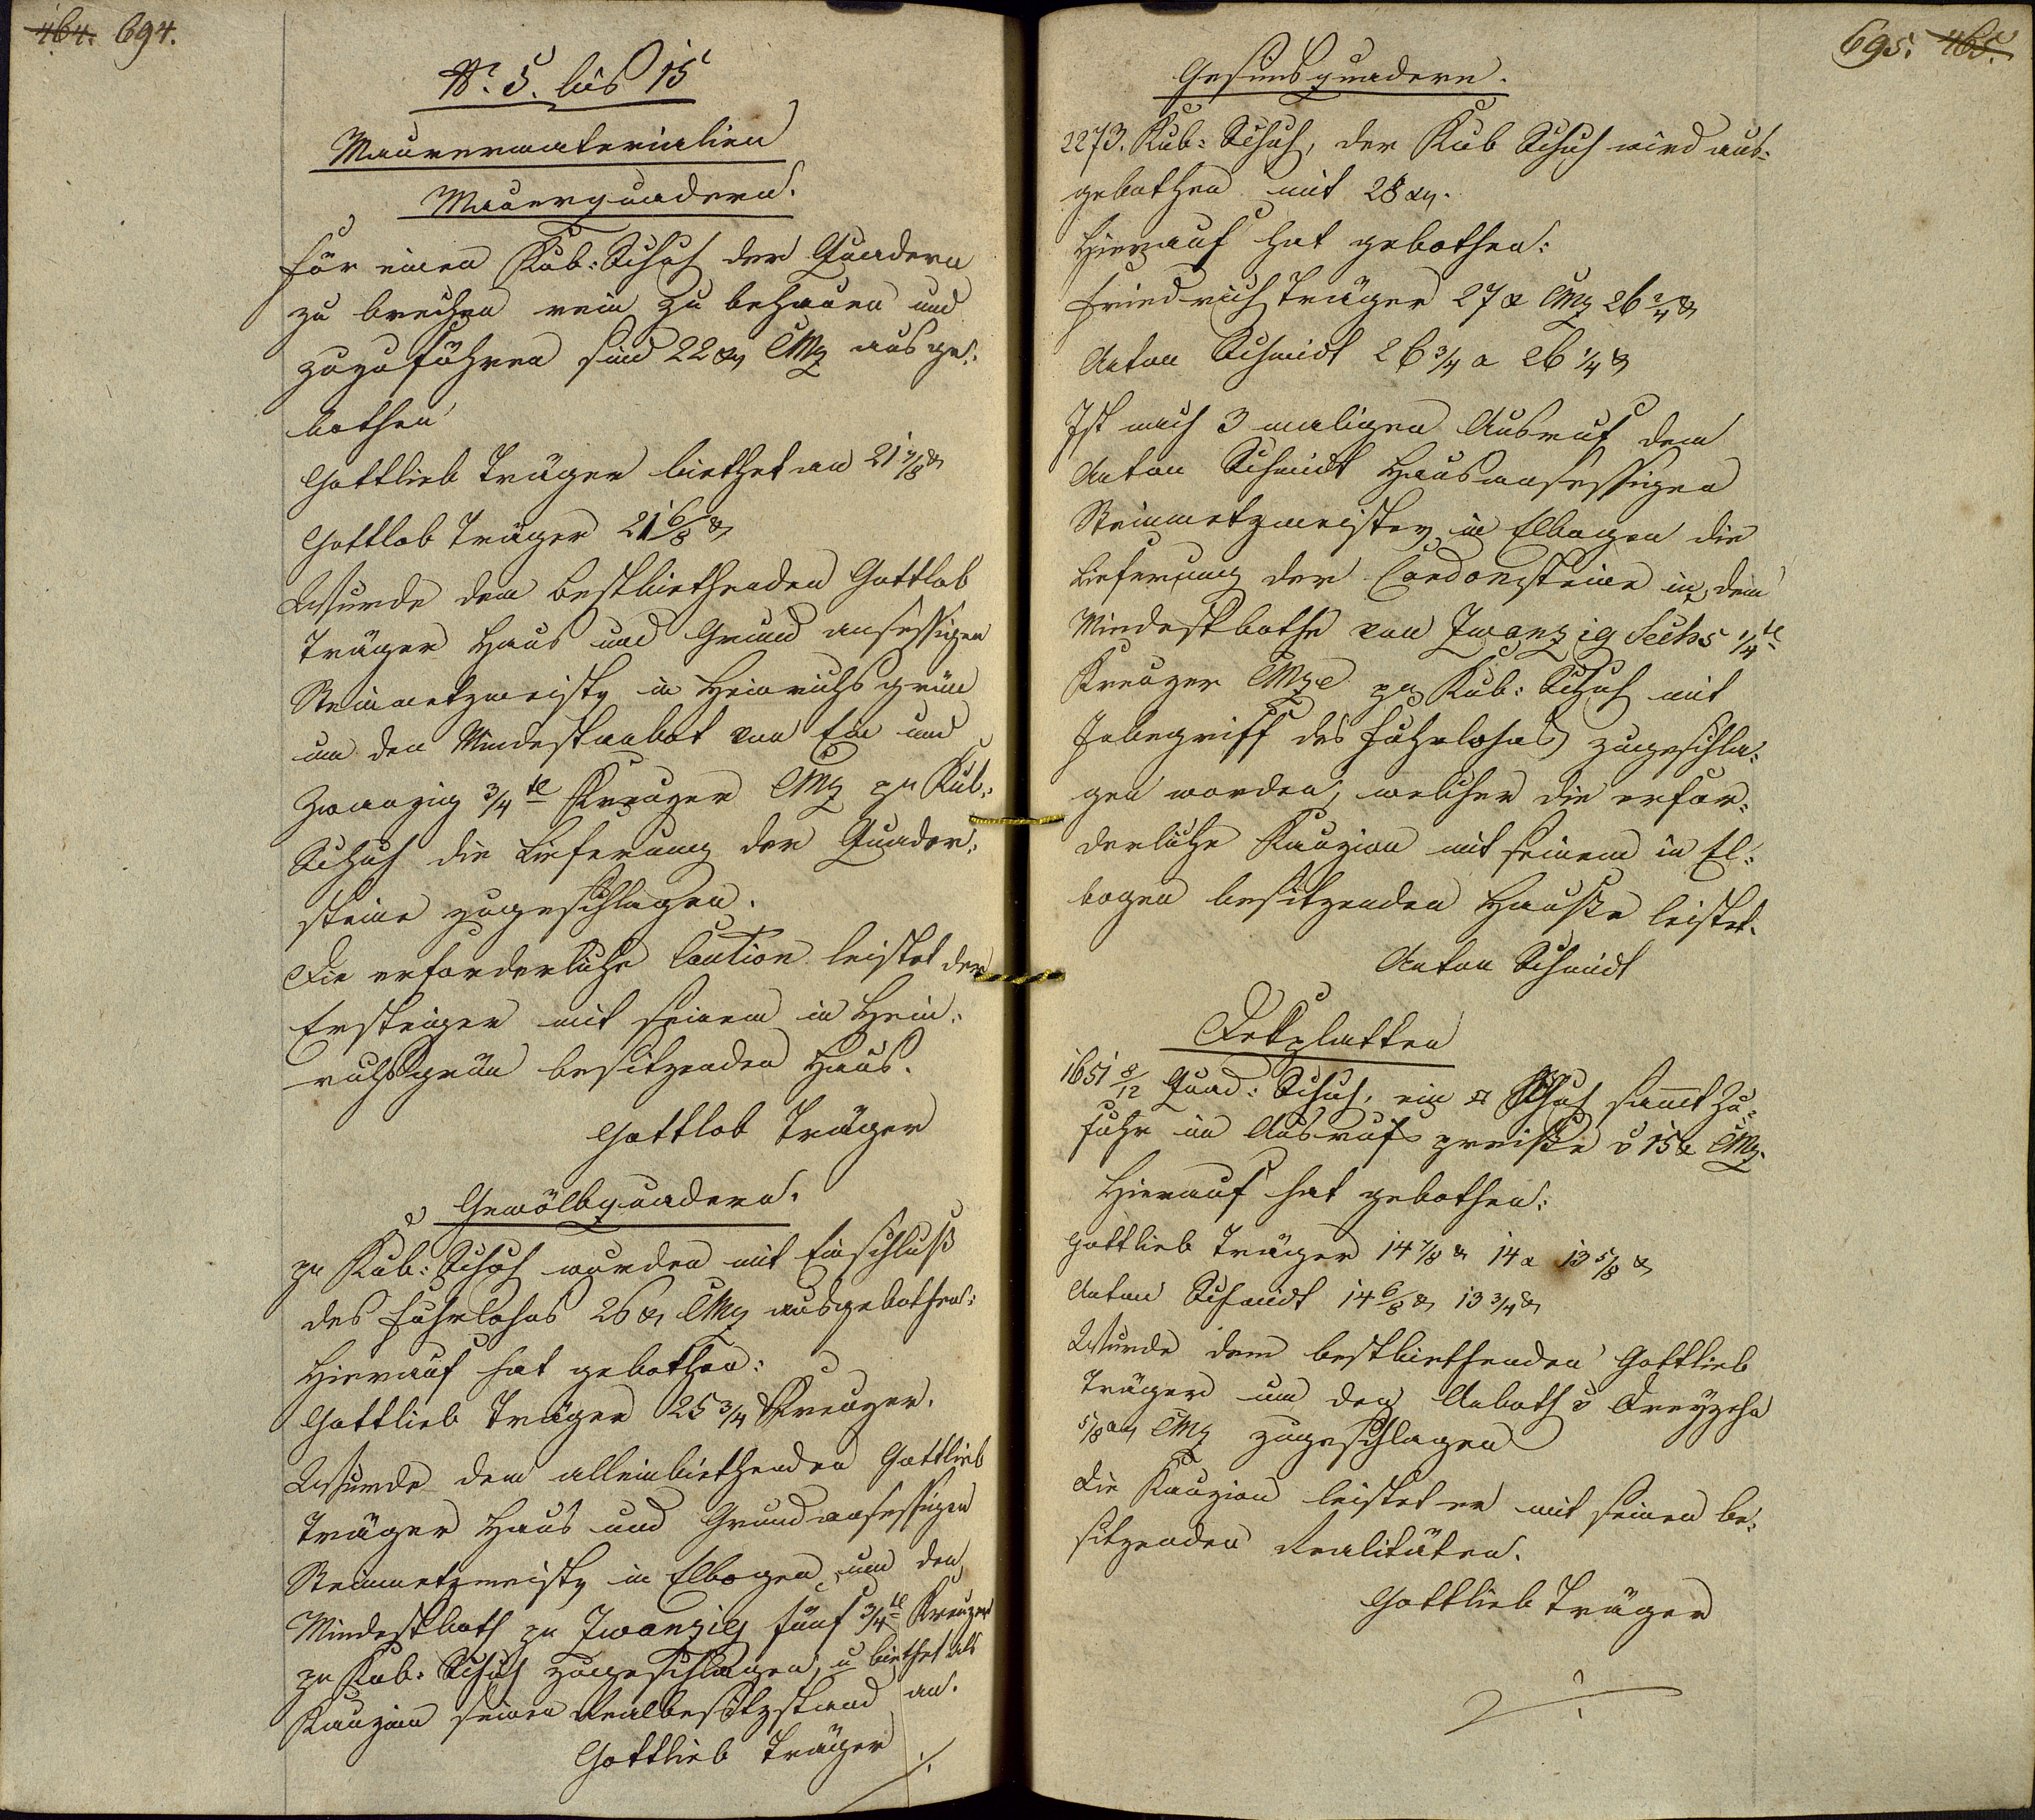 464. 694.
No. 5. bis 15
Maurermaterialien
Mauerquadern.
Für einen Kub: Schuh der Quadern
zu brechen rein zu behauen und
zuzuführen sind 22 xr CMz ausge-
bothen
Gottlieb Träger biethet an 21 7/8 xr
Gottlob Träger 21 6/8 xr
Wurde dem bestbiethenden Gottlob
Träger Haus und Grund ansessigen
Steinmetzmeister in Heinrichsgrün
um den Mindestanbot von Ein und
Zwanzig 3/4tl Kreuzer CMz pr Kub:
Schuh die Lieferung der Quader-
steine zugeschlagen.
Die erforderliche Caution leistet der
Ersteiger mit seinem in Hein-
richsgrün besitzenden Haus.
Gottlob Träger
Gewölbquadern.
pr Kub: Schuh wurden mit Einschluß
des Fuhrlohns 26 xr CMz ausgebothen:
Hierauf hat gebothen:
Gottlieb Träger 25 3/4 Kreuzer.
Wurde dem alleinbiethenden Gottlieb
Träger Haus und Grundansessigen
Steinmetzmeister in Elbogen um den
Mindestboth pr Zwanzig fünf 3/4tl Kreuzer
pr Kub: Schuh zugeschlagen, u biethet als
Kauzion seinen Realbesitzstand an.
Gottlieb Träger
./.
695. 465.
Gesimsquadern.
2273. Kub: Schuh, der Kub Schuh wird aus-
gebothen mit 28 xr.
Hierauf hat gebothen:
Friedrich Träger 27 x CMz 26 2/4 xr
Anton Schmidt 26 3/4 a 26 1/4 xr
Ist nach 3 maligen Ausruf dem
Anton Schmidt Hausansessigen
Steinmetzmeister in Elbogen die
Lieferung der Cordonsteine in dem
Mindestbothe von Zwanzig Sechs 1/4tl
Kreuzer CMze pr Kub: Schuh mit
Inbegriff des Fuhrlohns zugeschla-
gen worden, welcher die erfor-
derliche Kauzion mit seinem in El-
bogen besitzenden Hauße leistet.
Anton Schmidt
Dekplatten
1651 8/12 Quad: Schuh, ein □ Schuh samt Zu-
fuhr im Ausrufspreiße v 15 x CMz.
Hierauf hat gebothen:
Gottlieb Träger 14 7/8 xr 14 a 13 5/8 xr
Anton Schmidt 14 6/8 xr 13 3/4 xr
Wurde dem bestbiethenden Gottlieb
Träger um den Anboth v Dreyzehn
5/8 xr CMz zugeschlagen
Die Kauzion leistet er mit seinen be-
sitzenden Realitäten.
Gottlieb Träger